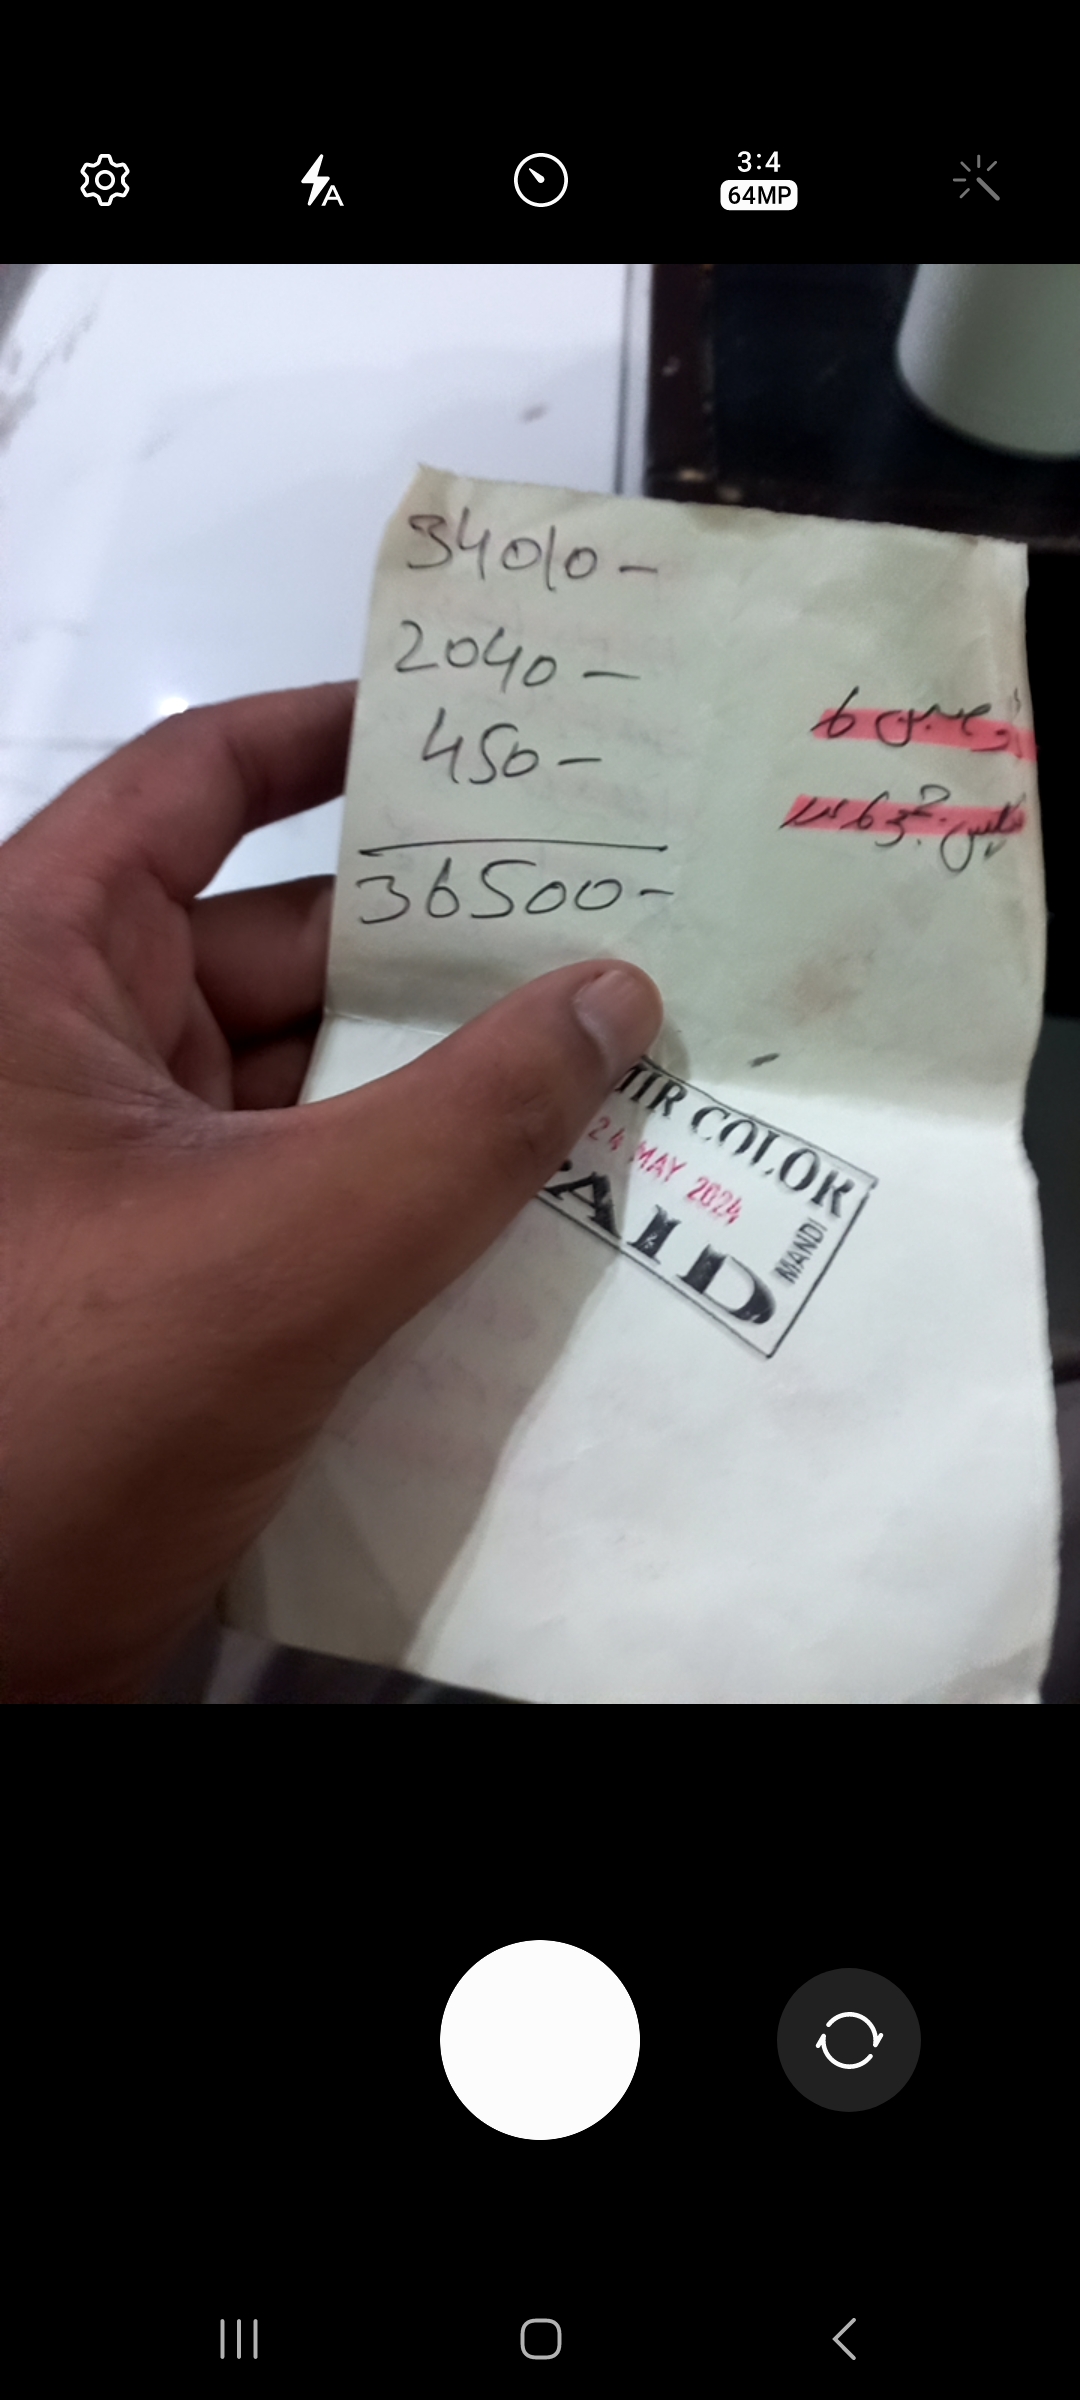 3:4
64MP
34010-
2040-
450-
36500-
MIR COLOR
24 MAY 2024
PAID
MANDI